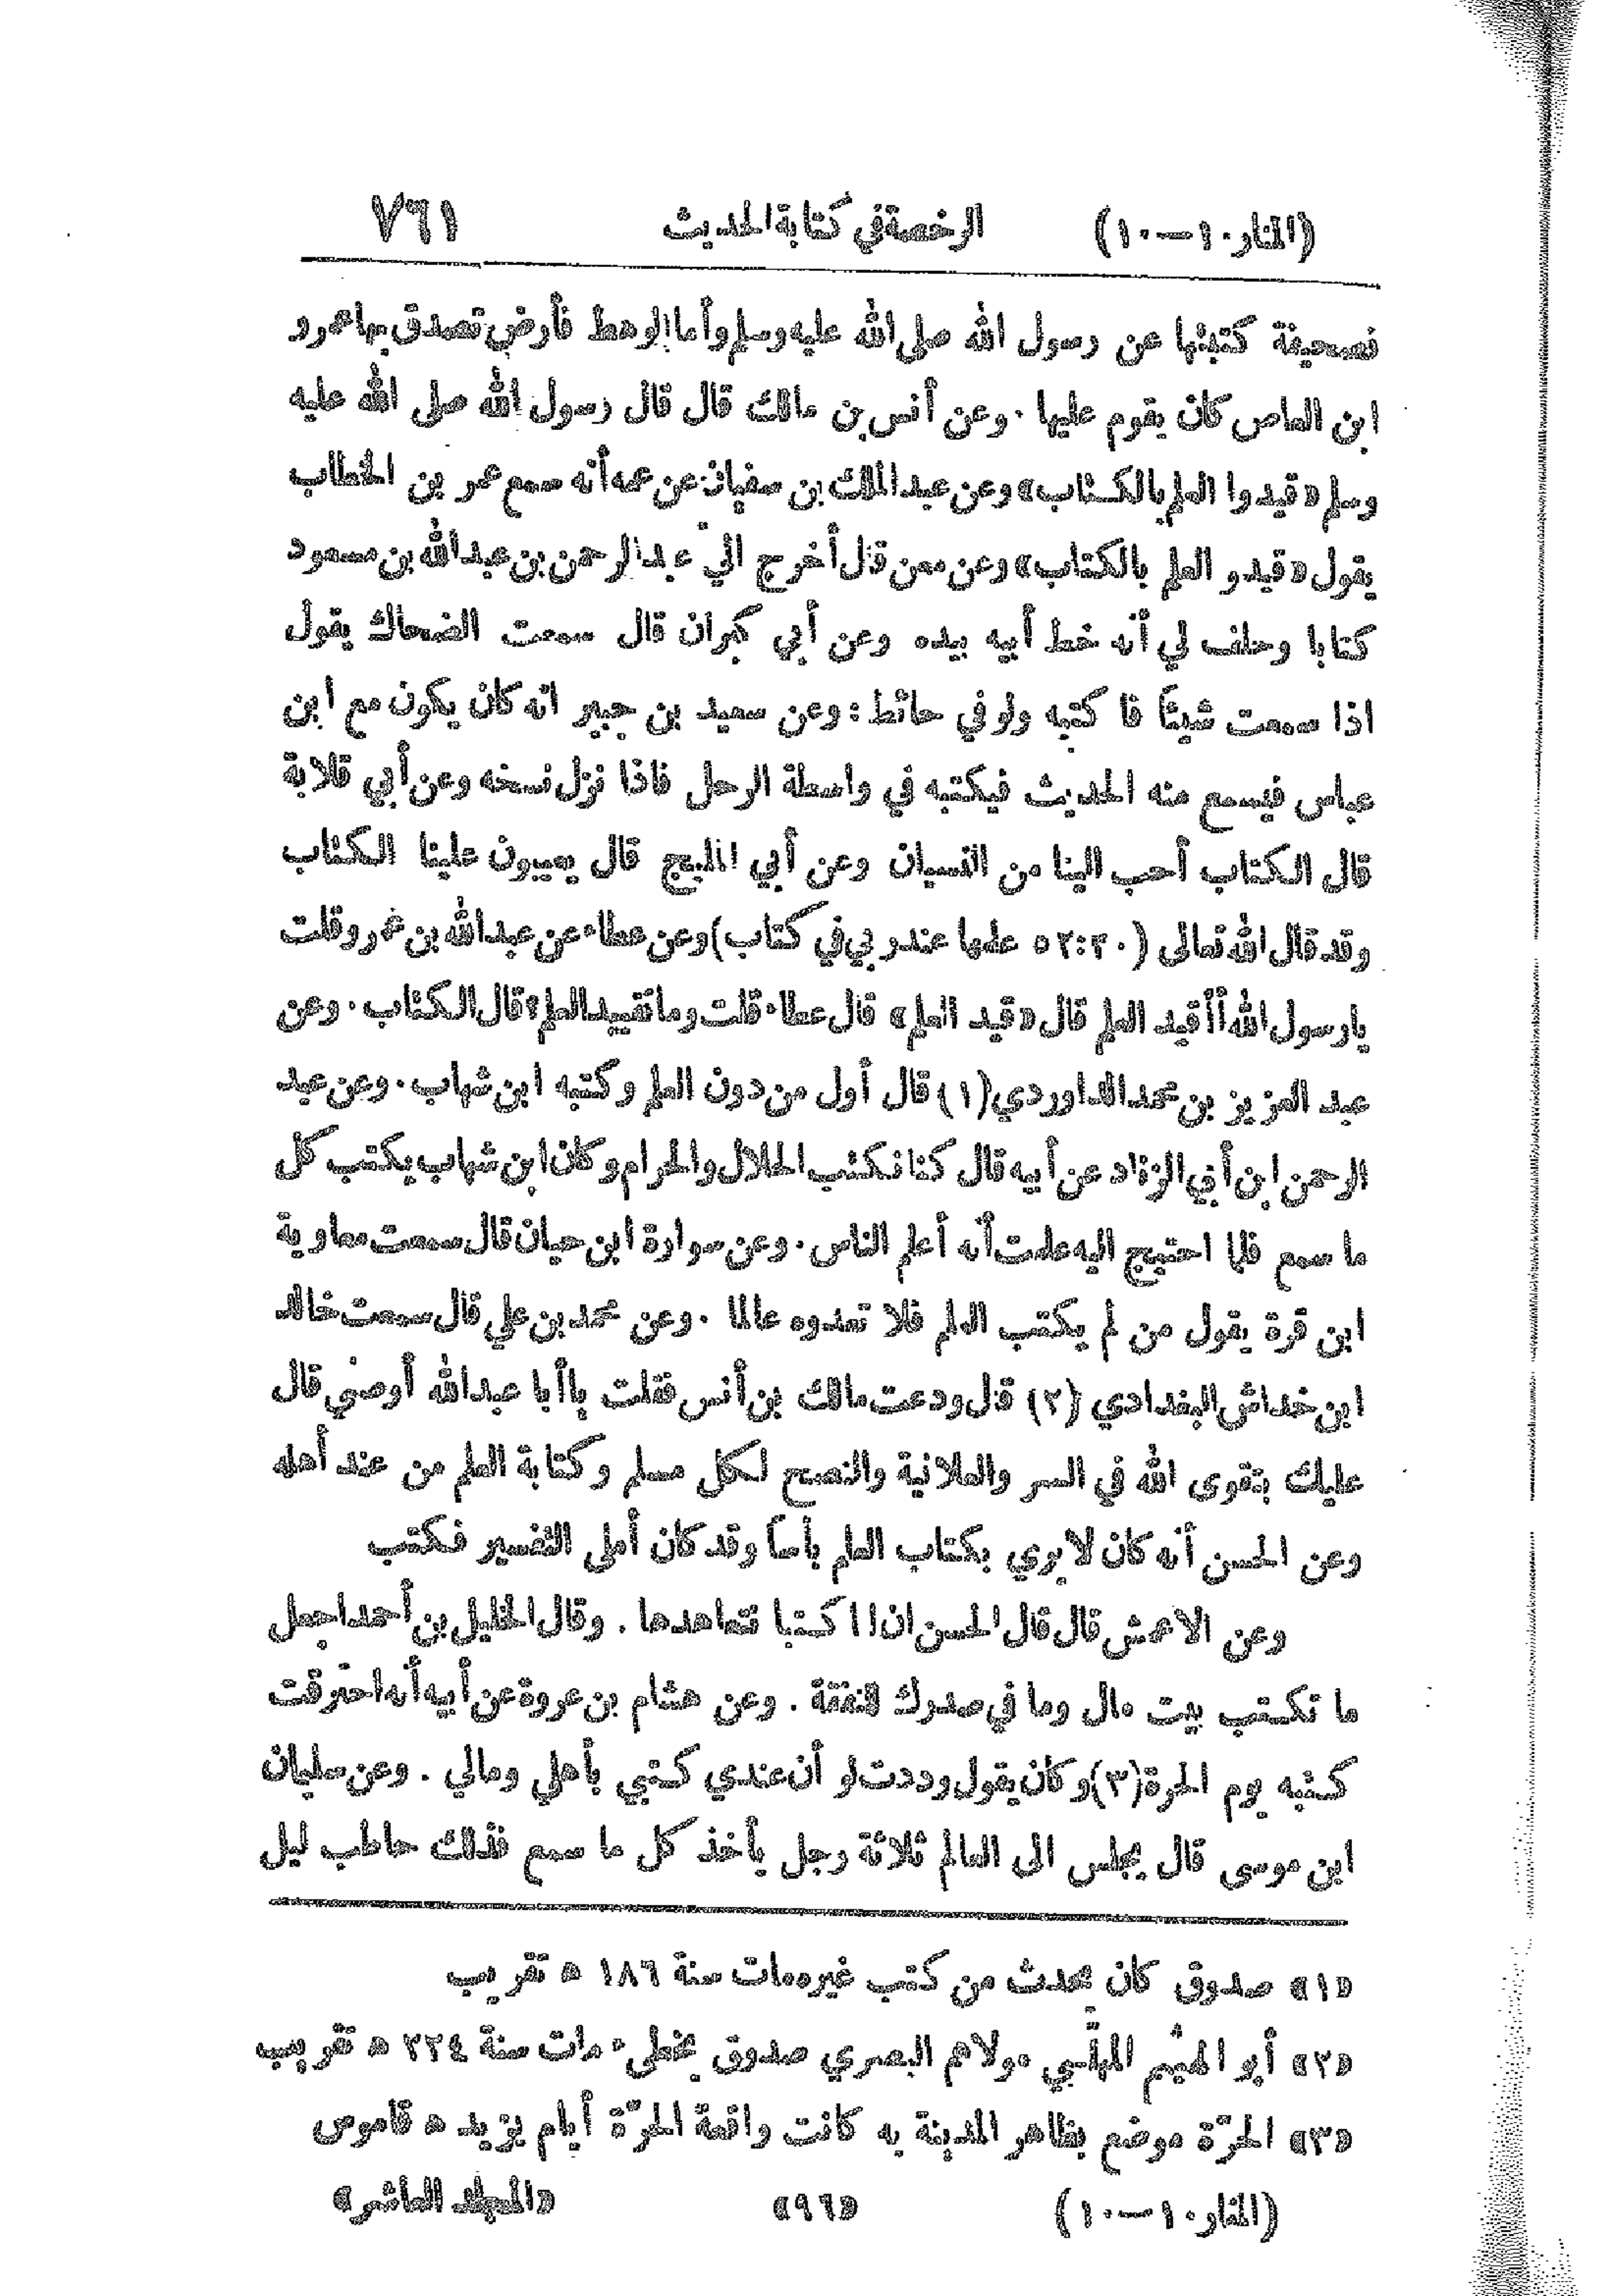 (المنار ١٠ — ١٠) الرخصة في كتابة الحديث ٧٦١
فصحيفة كتبتها عن رسول الله صلى الله عليه وسلم وأما الوهط فأرض تصدق بها عمرو
ابن العاص كان يقوم عليها . وعن أنس بن مالك قال قال رسول الله صلى الله عليه
وسلم « قيدوا العلم بالكتاب » وعن عبد الملك بن سفيان عن عمه أنه سمع عمر بن الخطاب
يقول « قيدو العلم بالكتاب » وعن معن قال أخرج اليّ عبد الرحمن بن عبد الله بن مسعود
كتابا وحلف لي أنه خط أبيه بيده وعن أبي كبران قال سمعت الضحاك يقول
اذا سمعت شيئاً فا كتبه ولو في حائط : وعن سعيد بن جبير انه كان يكون مع ابن
عباس فيسمع منه الحديث فيكتبه في واسطة الرحل فاذا نزل نسخه وعن أبي قلابة
قال الكتاب أحب الينا من النسيان وعن أبي المليح قال يعيبون علينا الكتاب
وقد قال الله تعالى (٢٠:٥٢ علمها عند ربي في كتاب) وعن عطاء عن عبد الله بن عمر وقلت
يا رسول الله أأقيد العلم قال « قيد العلم » قال عطاء قلت وما تقييد العلم؟ قال الكتاب . وعن
عبد العزيز بن محمد الداوردي (١) قال أول من دون العلم وكتبه ابن شهاب . وعن عبد
الرحمن ابن أبي الزناد عن أبيه قال كنا نكتب الحلال والحرام وكان ابن شهاب يكتب كل
ما سمع فلما احتيج اليه علمت أنه أعلم الناس . وعن سوادة ابن حيان قال سمعت معاوية
ابن قرة يقول من لم يكتب العلم فلا تعدوه عالما . وعن محمد بن علي قال سمعت خالد
ابن خداش البغدادي (٢) قال ودعت مالك بن أنس فقلت يا أبا عبد الله أوصني قال
عليك بتقوى الله في السر والعلانية والنصح لكل مسلم وكتابة العلم من عند أهله
وعن الحسن أنه كان لا يرى بكتاب العلم بأسا وقد كان أملى التفسير فكتب
وعن الاعمش قال قال الحسن ان لنا كتبا نتعاهدها . وقال الخليل بن أحمد اجعل
ما تكتب بيت مال وما في صدرك للنفقة . وعن هشام بن عروة عن أبيه أنه احترقت
كتبه يوم الحرة (٣) وكان يقول وددت لو أن عندي كتبي بأهلي ومالي . وعن سليمان
ابن موسى قال يجلس الى العالم ثلاثة رجل يأخذ كل ما سمع فذلك حاطب ليل
«١» صدوق كان يحدث من كتب غيره مات سنة ١٨٦ ه تقريب
«٢» أبو الهيثم المهلَّبي مولاهم البصري صدوق يخطىء مات سنة ٢٢٤ ه تقريب
«٣» الحرّة موضع بظاهر المدينة به كانت واقعة الحرّة أيام يزيد ه قاموس
(المنار ١٠ — ١٠) «٩٦» «المجلد العاشر»